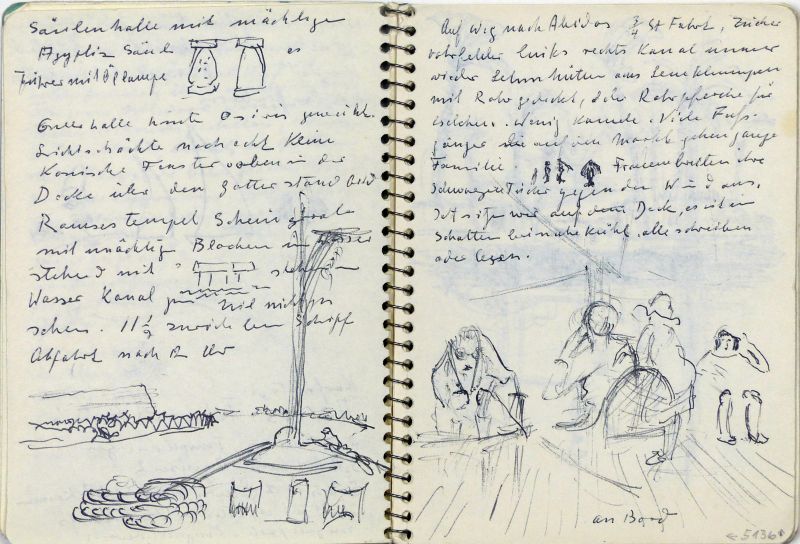 Säulenhalle mit mächtigen
Ägyptis Säul es
Führer mit Öllampe
halle Osiris geweiht.
Lichtschächte noch echt Keine
Konische Fenster oben in der
Decke über den Götter stand Bild
Ramsestempel Schein
mit mächtigen Blöcken im Wasser
stehend mit stehen im
Wasser Kanal Nil nicht zu
sehen. 11 1/2 zurück beim Schiff
Abfahrt nach 12 Uhr
Auf Weg nach Abidos 3/4 St Fahrt, Zucker
rohrfelder links rechts Kanal immer
wieder Lehmhütten aus Lehmklumpen
mit Rohr gedeckt, oder Rohrpferche für
Eselchen. Wenig Kamele. Viele Fuß-
gänger die auf den Markt gehen ganze
Familie Frauen breiten ihre
schwarzen Tücher gegen den Wind aus.
Jetzt sitzen wir auf dem Deck, es ist im
Schatten beinahe kühl. alle schreiben
oder lesen.
an Bord
5136